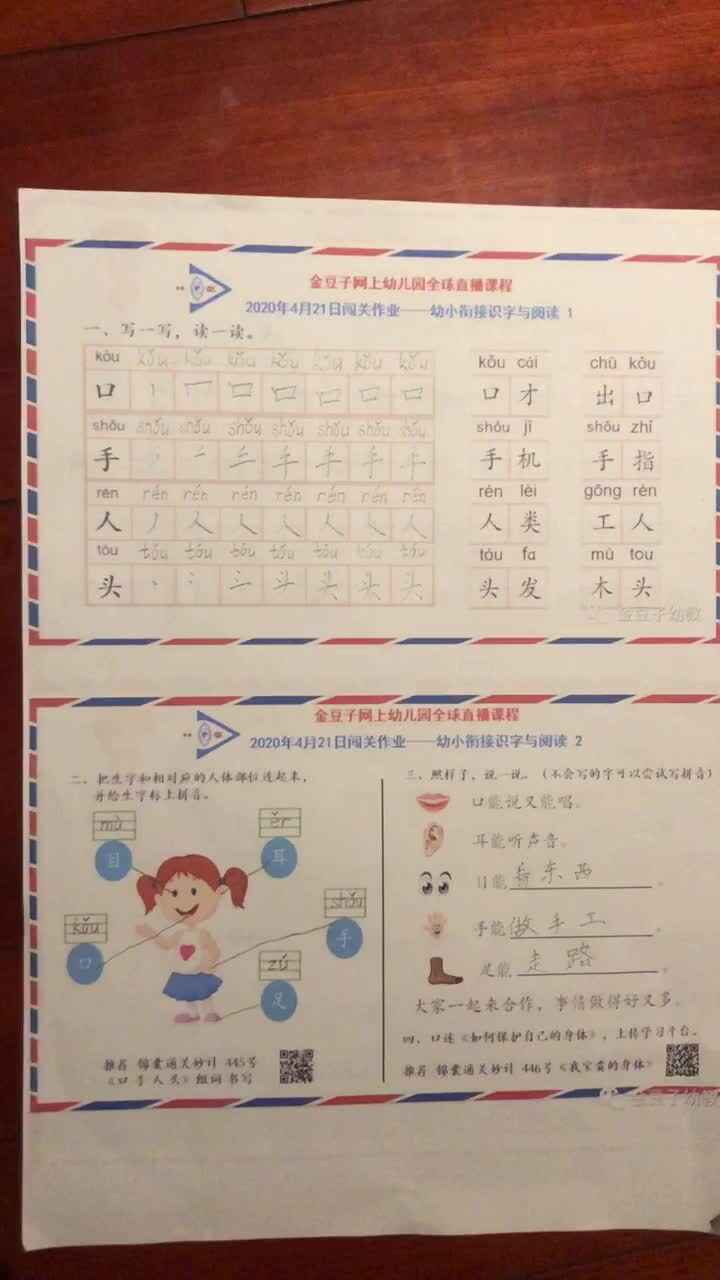 金豆子网上幼儿园全球直播课程
2020年4月21日闯关作业——幼小衔接识字与阅读 1
一、写一写，读一读。
kǒu kǒu kǒu kǒu kǒu kǒu kǒu kǒu
口 丨 冂 口 口 口 口 口
shǒu shǒu shǒu shǒu shǒu shǒu shǒu shǒu
手 手 手 手 手
rén rén rén rén rén rén rén rén
人 丿 人 人 人 人 人 人
tóu tóu tóu tóu tóu tóu tóu tóu
头 头 头 头
kǒu cái chū kǒu
口 才 出 口
shǒu jī shǒu zhǐ
手 机 手 指
rén lèi gōng rén
人 类 工 人
tóu fa mù tou
头 发 木 头
金豆子幼教
金豆子网上幼儿园全球直播课程
2020年4月21日闯关作业——幼小衔接识字与阅读 2
二、把生字和相对应的人体部位连起来，
并给生字标上拼音。
mù ěr
目 耳
kǒu shǒu
口 手
zú
足
推荐 锦囊通关妙计 445号
《口手人头》组词书写
三、照样子，说一说。（不会写的字可以尝试写拼音）
口能说又能唱。
耳能听声音。
目能看东西。
手能做手工。
足能走路。
大家一起来合作，事情做得好又多。
四、口述《如何保护自己的身体》，上传学习平台。
推荐 锦囊通关妙计 446号《我宝贵的身体》
金豆子幼教